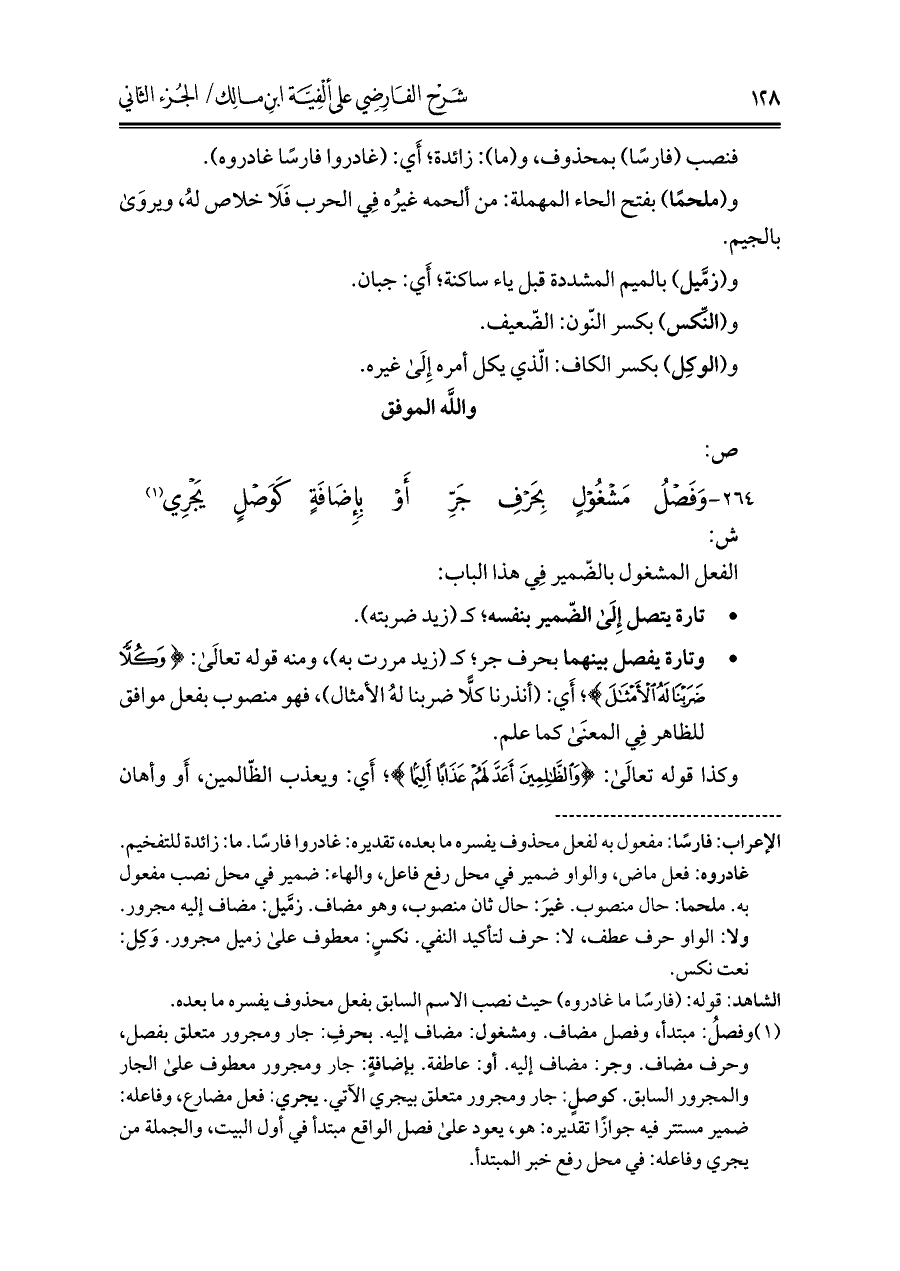 ١٢٨ شَرْح الفَارِضِي على أَلْفِيَّة ابنِ مَالِك/ الجُزء الثاني
فنصب (فارسًا) بمحذوف، و(ما): زائدة؛ أَي: (غادروا فارسًا غادروه).
و(ملحمًا) بفتح الحاء المهملة: من ألحمه غيرُه فِي الحرب فَلَا خلاص لهُ، ويروَىٰ
بالجيم.
و(زمَّيل) بالميم المشددة قبل ياء ساكنة؛ أَي: جبان.
و(النِّكس) بكسر النّون: الضّعيف.
و(الوكِل) بكسر الكاف: الّذي يكل أمره إِلَىٰ غيره.
واللَّه الموفق
ص:
٢٦٤-وَفَصْلُ مَشْغُوْلٍ بِحَرْفِ جَرِّ أَوْ بِإِضَافَةٍ كَوَصْلٍ يَجْرِي(١)
ش:
الفعل المشغول بالضّمير فِي هذا الباب:
• تارة يتصل إِلَىٰ الضّمير بنفسه؛ كـ (زيد ضربته).
• وتارة يفصل بينهما بحرف جر؛ كـ (زيد مررت به)، ومنه قوله تعالَىٰ: ﴿ وَكُلًّا
ضَرَبْنَا لَهُ ٱلْأَمْثَـٰلَ ﴾؛ أَي: (أنذرنا كلًّا ضربنا لهُ الأمثال)، فهو منصوب بفعل موافق
للظاهر فِي المعنَىٰ كما علم.
وكذا قوله تعالَىٰ: ﴿وَٱلظَّـٰلِمِينَ أَعَدَّ لَهُمْ عَذَابًا أَلِيمًا ﴾؛ أَي: ويعذب الظّالمين، أَو وأهان
الإعراب: فارسًا: مفعول به لفعل محذوف يفسره ما بعده، تقديره: غادروا فارسًا. ما: زائدة للتفخيم.
غادروه: فعل ماض، والواو ضمير في محل رفع فاعل، والهاء: ضمير في محل نصب مفعول
به. ملحما: حال منصوب. غيرَ: حال ثان منصوب، وهو مضاف. زمَّيل: مضاف إليه مجرور.
ولا: الواو حرف عطف، لا: حرف لتأكيد النفي. نكسٍ: معطوف علىٰ زميل مجرور. وَكِل:
نعت نكس.
الشاهد: قوله: (فارسًا ما غادروه) حيث نصب الاسم السابق بفعل محذوف يفسره ما بعده.
(١)وفصلُ: مبتدأ، وفصل مضاف. ومشغول: مضاف إليه. بحرفِ: جار ومجرور متعلق بفصل،
وحرف مضاف. وجر: مضاف إليه. أو: عاطفة. بإضافةٍ: جار ومجرور معطوف علىٰ الجار
والمجرور السابق. كوصلٍ: جار ومجرور متعلق بيجري الآتي. يجري: فعل مضارع، وفاعله:
ضمير مستتر فيه جوازًا تقديره: هو، يعود علىٰ فصل الواقع مبتدأ في أول البيت، والجملة من
يجري وفاعله: في محل رفع خبر المبتدأ.